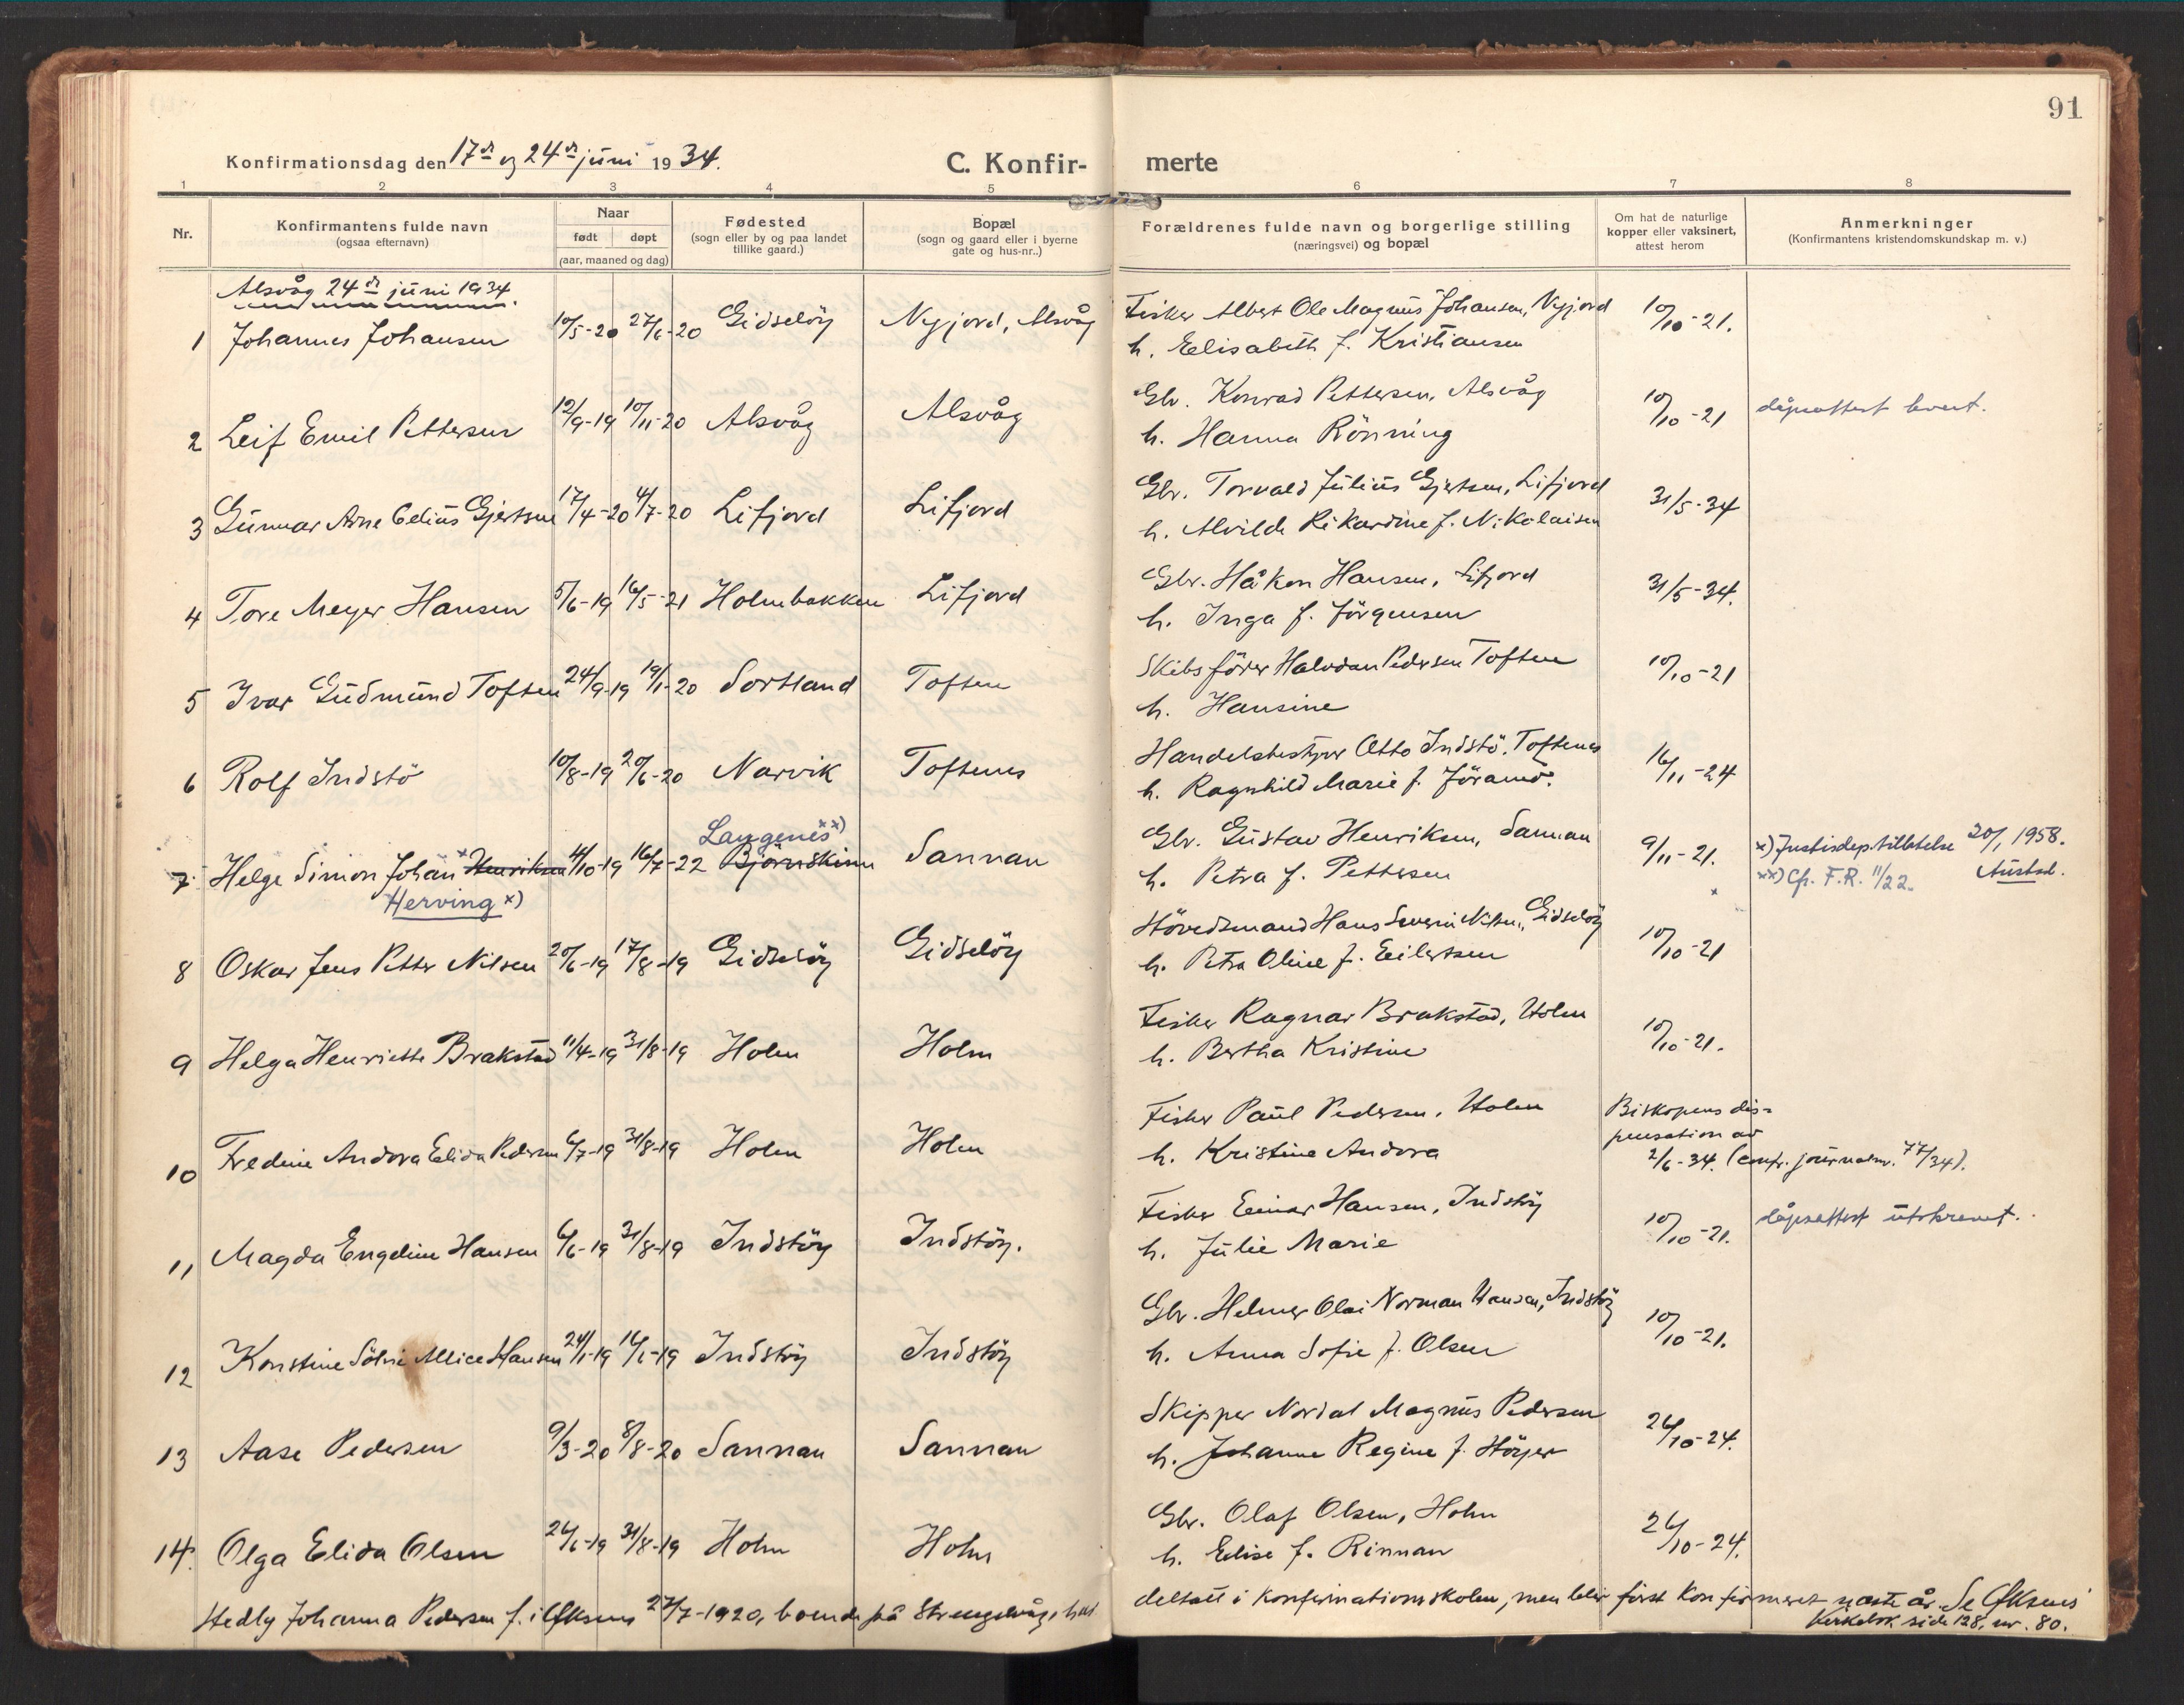 91
Konfirmationsdag den 17de og 24de juni 1934.
C. Konfir-
merte
1 2 3 4 5 6 7 8
Nr.
Konfirmantens fulde navn
(ogsaa efternavn)
Naar
født døpt
(aar, maaned og dag)
Fødested
(sogn eller by og paa landet
tillike gaard.)
Bopæl
(sogn og gaard eller i byerne
gate og hus-nr..)
Forældrenes fulde navn og borgerlige stilling
(næringsvei) og bopæl
Om hat de naturlige
kopper eller vaksinert,
attest herom
Anmerkninger
(Konfirmantens kristendomskundskap m. v.)
Alsvåg 24de juni 1934.
1 Johannes Johansen 10/5-20 27/6-20 Gidselöy Nyjord, Alsvåg Fisker Albert Ole Magnus Johansen, Nyjord 10/10-21.
h. Elisabeth f. Kristiansen
2 Leif Emil Pettersen 12/9-19 10/11-20 Alsvåg Alsvåg Gbr. Konrad Pettersen, Alsvåg 10/10-21 dåpsattest levert.
h. Hanna Rönning
3 Gunnar Arne Celius Gjertsen 17/4-20 4/7-20 Lifjord Lifjord Gbr. Torvald Julius Gjertsen, Lifjord 31/5-34
h. Alvilde Rikardine f. Nikolaisen
4 Tore Meyer Hansen 5/6-19 16/5-21 Holmbakken Lifjord Gbr. Håkon Hansen, Lifjord 31/5-34.
h. Inga f. Jörgensen
5 Ivar Gudmund Toften 24/9-19 19/1-20 Sortland Toften Skibsförer Halvdan Pedersen Toften 10/10-21
h. Hansine
6 Rolf Indstö 10/8-19 20/6-20 Narvik Toftenes Handelsbestyrer Otto Indstö, Toftenes 16/11-24
h. Ragnhild Marie f. Jöramö.
7 Helge Simon Johan x Henriksen 4/10-19 16/7-22 Bjørnskinn Sannan Gbr. Gustav Henriksen, Sannan 9/11-21.
Langenes xx)
Herving x)
h. Petra f. Pettersen
x) Justisdep. tillatelse 20/1 1958.
xx) Cfr. F.R. 11/22. Austad.
8 Oskar Jens Petter Nilsen 20/6-19 17/8-19 Gidselöy Gidselöy Hövedsmand Hans Severin Nilsen, Gidselöy 10/10-21
h. Petra Oline f. Eilertsen
9 Helga Henriette Brakstad 11/4-19 31/8-19 Holm Holm Fisker Ragnar Brakstad, Holm 10/10-21.
h. Bertha Kristine
10 Fredine Andora Elida Pedersen 6/7-19 31/8-19 Holm Holm Fisker Paul Pedersen, Holm
h. Kristine Andora
Biskopens dis-
pensation av
2/6-34. (confr. journalnr. 77/34).
11 Magda Engeline Hansen 6/6-19 31/8-19 Indstöy Indstöy. Fisker Einar Hansen, Indstöy 10/10-21. dåpsattest utskrevet.
h. Julie Marie
12 Konstine Sölvi Allice Hansen 24/1-19 Indstöy Indstöy Gbr. Helmer Olai Norman Hansen, Indstöy 10/10-21.
h. Anna Sofie f. Olsen
13 Aase Pedersen 9/3-20 8/8-20 Sannan Sannan Skipper Nordal Magnus Pedersen 26/10-24.
h. Johanne Regine f. Höyer
14. Olga Elida Olsen 26/6-19 31/8-19 Holm Holm Gbr. Olaf Olsen, Holm 26/10-24.
h. Elise f. Rinnan
Hedly Johanna Pedersen f. i Öksnes 27/7-1920, boende på Strengelvåg, har deltatt i konfirmationsskolen, men blir först konfirmeret næste år. Se Öksnes
kirkebok side 128, nr. 80.